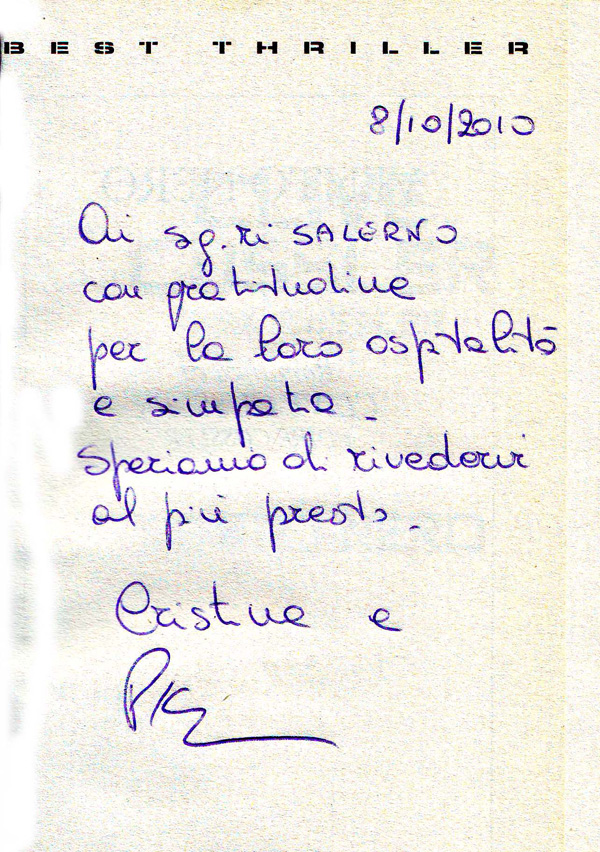 BEST THRILLER
8/10/2010
Ai sg.ri SALERNO
con gratitudine
per la loro ospitalità
e simpatia.
Speriamo di rivedervi
al più presto.
Cristina e